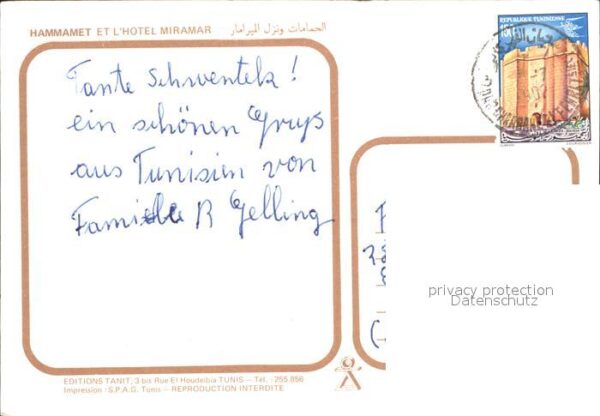 HAMMAMET ET L'HOTEL MIRAMAR الحمامات ونزل الميرامار
REPUBLIQUE TUNISIENNE
Tante Schwentek!
ein schönen Gruß
aus Tunisien von
Familie R Gelling
privacy protection
Datenschutz
EDITIONS TANIT, 3 bis Rue El Houdeibia TUNIS - Tél. : 255.856
Impression : S.P.A.G. Tunis - REPRODUCTION INTERDITE